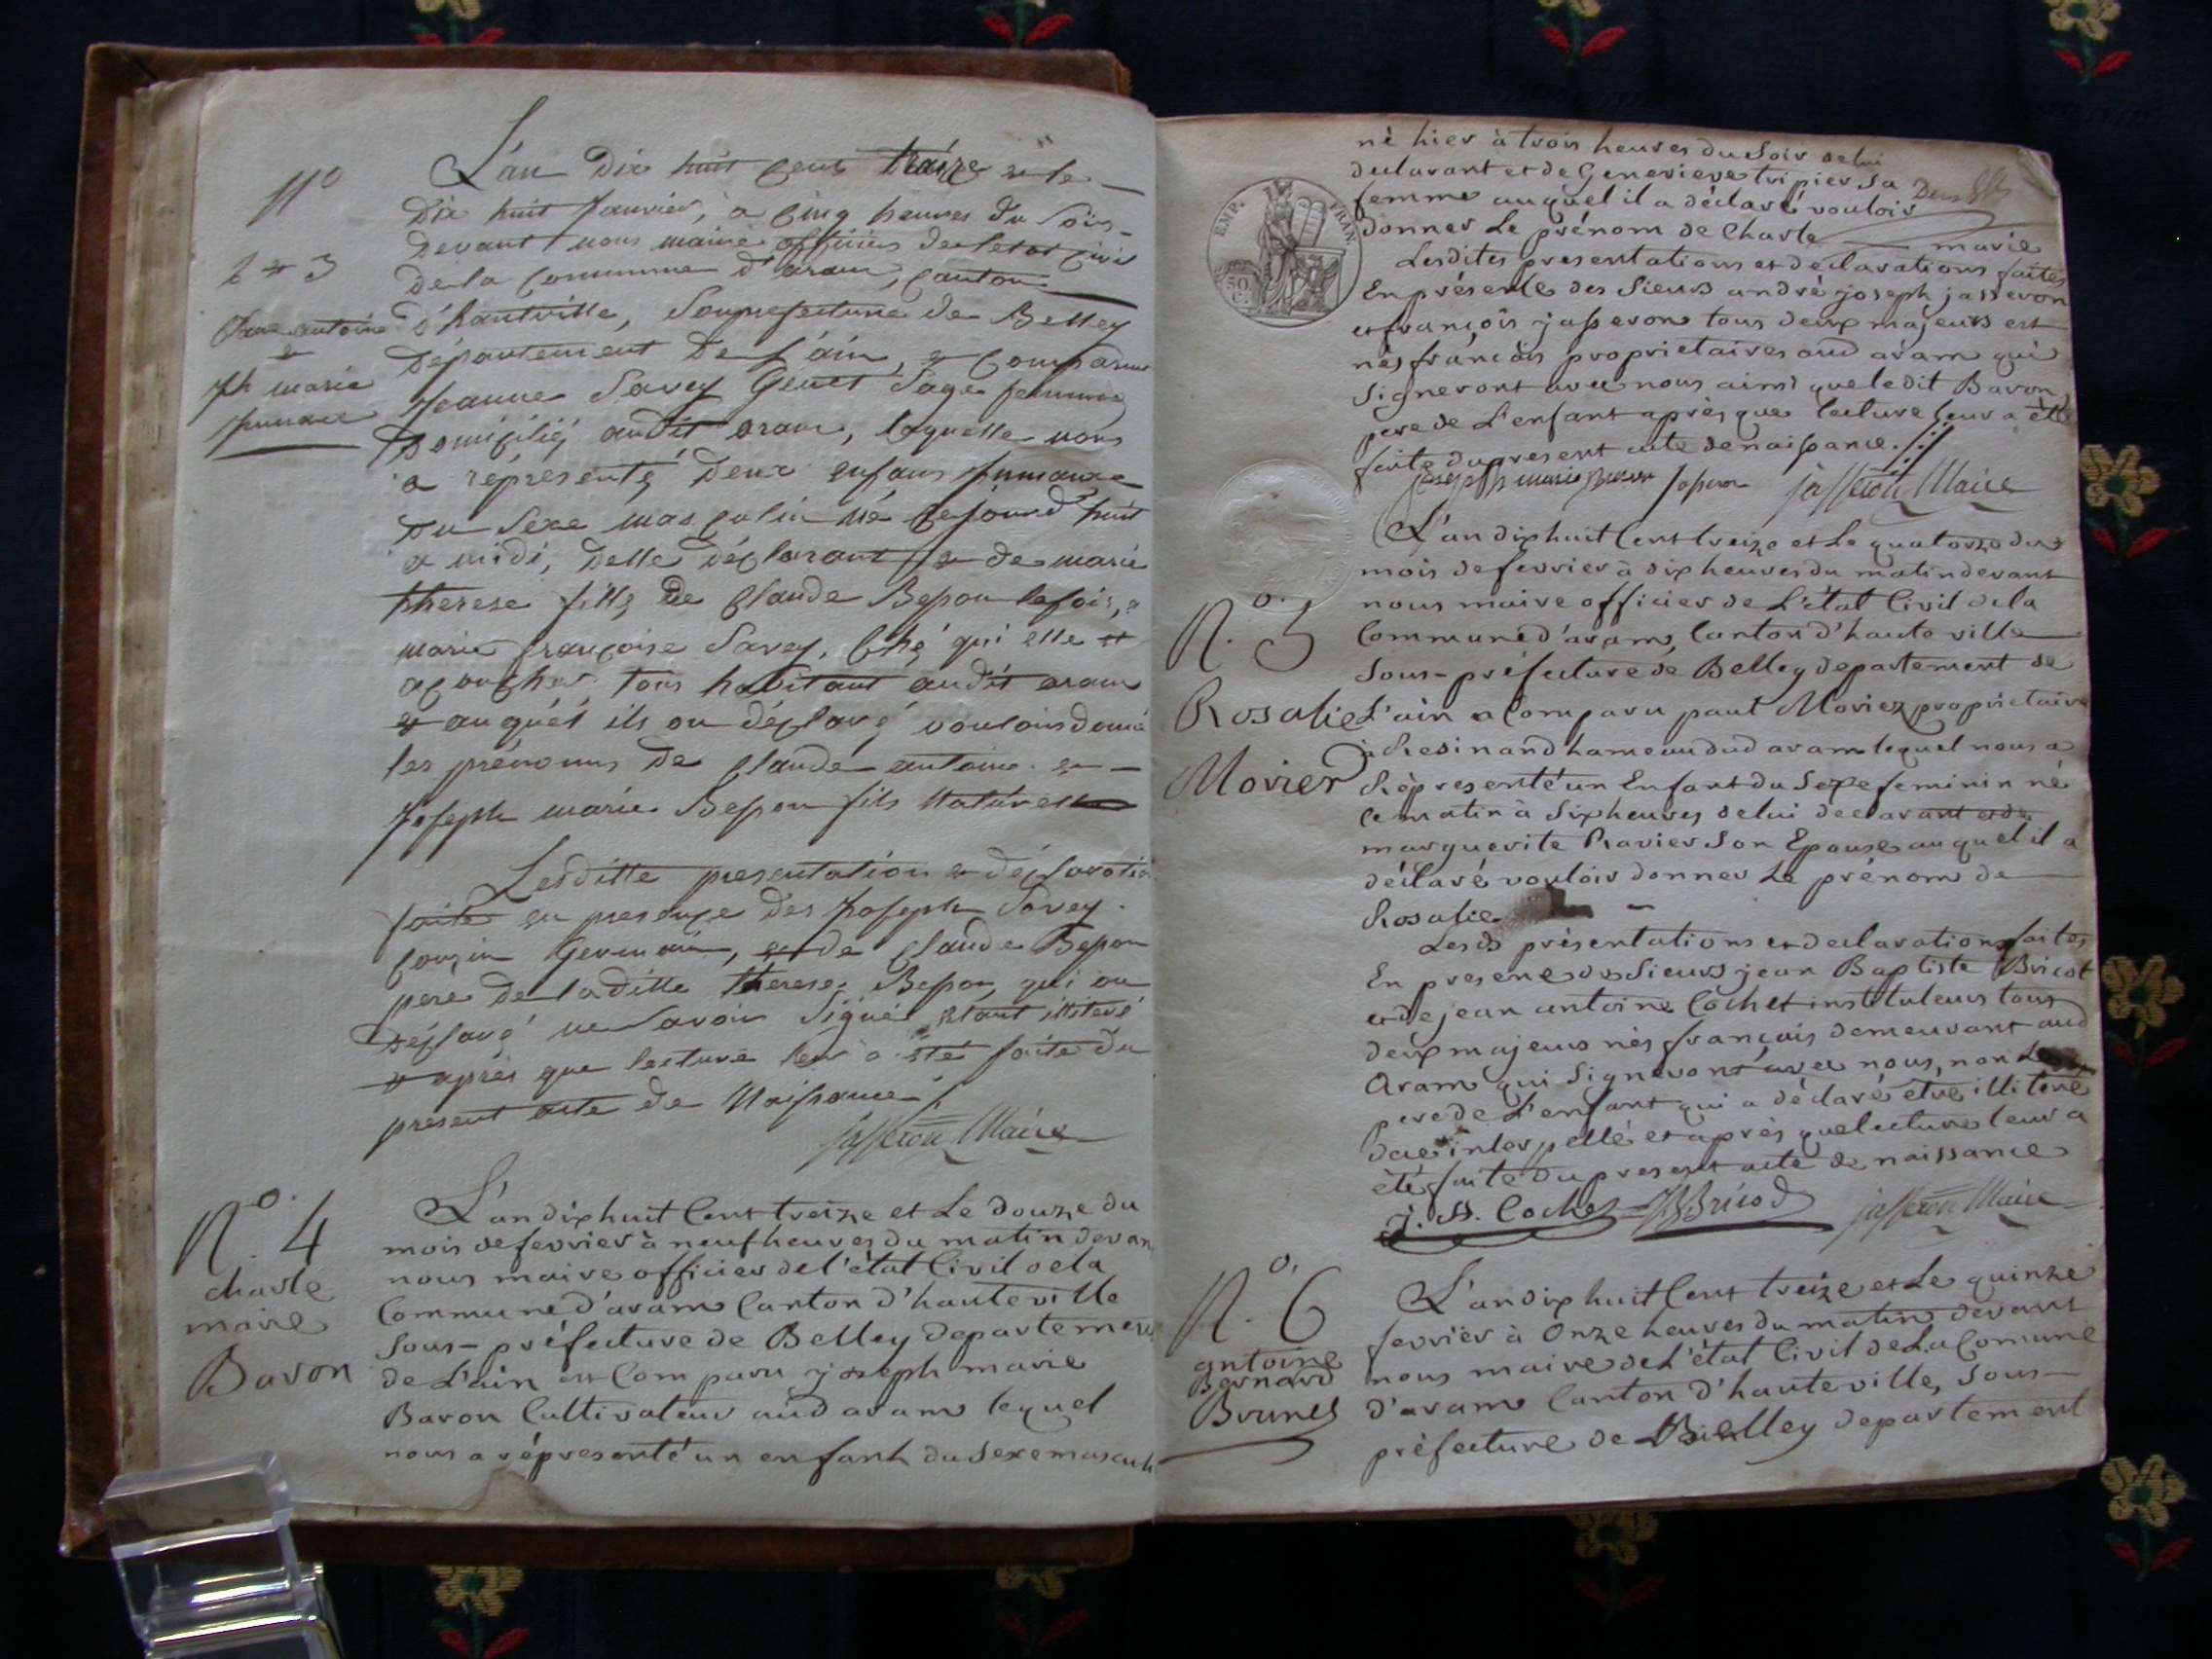 N°
2 et 3
Claude antoine
et
Jh marie
Jumeaux
L'an Dix huit Cent traize et le
Dix huit Janvier, a Cinq heures du Soir
Devant nous maire officier de letat Civil
De la Commune d'aram, Canton
d'hautville, Souprefecture de Belley
Département De L'ain, a Comparu
Jeanne Savey Genet Sage femme
Domicilié audit aram, laquelle nous
a réprésenté Deux enfans Jumaux
Du Sexe masculin né Cejourd'huit
a midi, Delle Déclarant et de marie
therese fille De Claude Besson
marie françoise Savey, Ché qui elle et
acouché, tous habitant audit aram
et auquél ils on déclaré vouloir donné
les prénoms De Claude antoine et
Joseph marie Besson fils Naturelle
Lesditte presentation et Déclaration
faite en presence Des Joseph Savey
Couzin Germain, et de Claude Besson
pere De laditte therese Besson, qui on
Déclaré ne Savoir Signé etant illiteré
et aprés que lecture leur a été faite du
present acte de Naissance
jasseron Maire
N°. 4
charle
marie
Baron
L'an dix huit Cent treize et Le douze du
mois de fevrier à neuf heures du matin devant
nous maire officier de l'état Civil de la
Commune d'aram Canton d'hauteville
Sous-préfecture de Belley departement
de L'ain est Comparu joseph marie
Baron Cultivateur aud aram lequel
nous a répresenté un enfant du Sexe masculin
EMP. FRAN.
50 C.
né hier à trois heures du Soir de lui
declarant et de Genevieve tripier Sa
femme auquel il a déclaré vouloir
donner Le prénom de Charle marie
Lesdites presentations et declarations faites
En présence des Sieurs andré joseph jasseron
et françois jasseron tous deux majeurs et
nés françois proprietaires aud aram qui
Signeront avec nous ainsi que ledit Baron
pere de L'enfant après que lecture leur a été
faite du present acte de naissance.
joseph marie Baron jasseron jasseron Maire
N°. 5
Rosalie
Morier
L'an dix huit Cent treize et Le quatorze du
mois de fevrier à dix heures du matin devant
nous maire officier de L'état Civil de la
Commune d'aram, Canton d'hauteville
Sous-préfecture de Belley departement de
L'ain a Comparu paul Morier proprietaire
à Resinand hameau dud aram lequel nous a
Réprésenté un Enfant du Sexe feminin né
ce matin à Six heures de lui declarant et de
marguerite Ravier Son Epouse auquel il a
déclaré vouloir donner Le prénom de
Rosalie
Lesds présentations et declarations faites
En presence des Sieurs jean Baptiste Bricot
et de jean antoine Cochet instituteurs tous
deux majeurs nés français demeurant aud
Aram qui Signeront avec nous, non Le
pere de L'enfant qui a déclaré être illiteré
de ce interpellé et après que lecture leur a
été faite du present acte de naissance
J. A. Cochet JB Bricod jasseron Maire
N°. 6
antoine
Bernard
Brunet
L'an dix huit Cent treize et Le quinze
fevrier à Onze heures du matin devant
nous maire de L'état Civil de La Comune
d'aram Canton d'hauteville, Sous-
préfecture de Belley departement